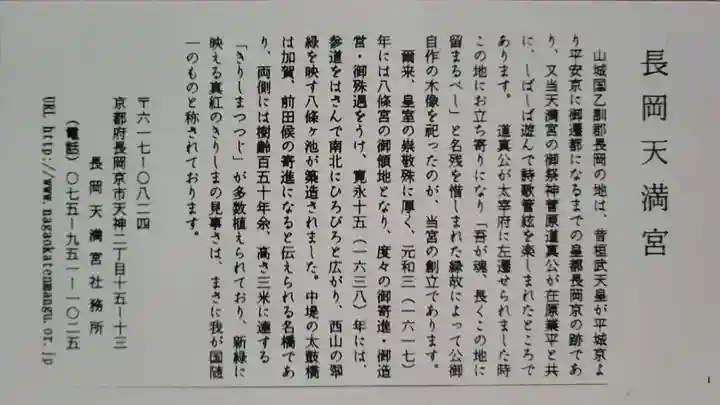 長岡天満宮
山城国乙訓郡長岡の地は、昔桓武天皇が平城京よ
り平安京に御遷都になるまでの皇都長岡京の跡であ
り、又当天満宮の御祭神菅原道真公が在原業平と共
に、しばしば遊んで詩歌管絃を楽しまれたところで
あります。 道真公が太宰府に左遷せられました時
この地にお立ち寄りになり「吾が魂、長くこの地に
留まるべし」と名残を惜しまれた縁故によって公御
自作の木像を祀ったのが、当宮の創立であります。
爾来、皇室の崇敬殊に厚く、元和三(一六一七)
年には八條宮の御領地となり、度々の御寄進・御造
営・御殊遇をうけ、寛永十五(一六三八)年には、
参道をはさんで南北にひろびろと広がり、西山の翠
緑を映す八條ヶ池が築造されました。中堤の太鼓橋
は加賀、前田候の寄進になると伝えられる名橋であ
り、両側には樹齢百五十年余、高さ三米に達する
「きりしまつつじ」が多数植えられており、新緑に
映える真紅のきりしまの見事さは、まさに我が国随
一のものと称されております。
〒六一七-〇八二四
京都府長岡京市天神二丁目十五-十三
長岡天満宮社務所
(電話)〇七五-九五一-一〇二五
URL http://www.nagaokatenmangu.or.jp